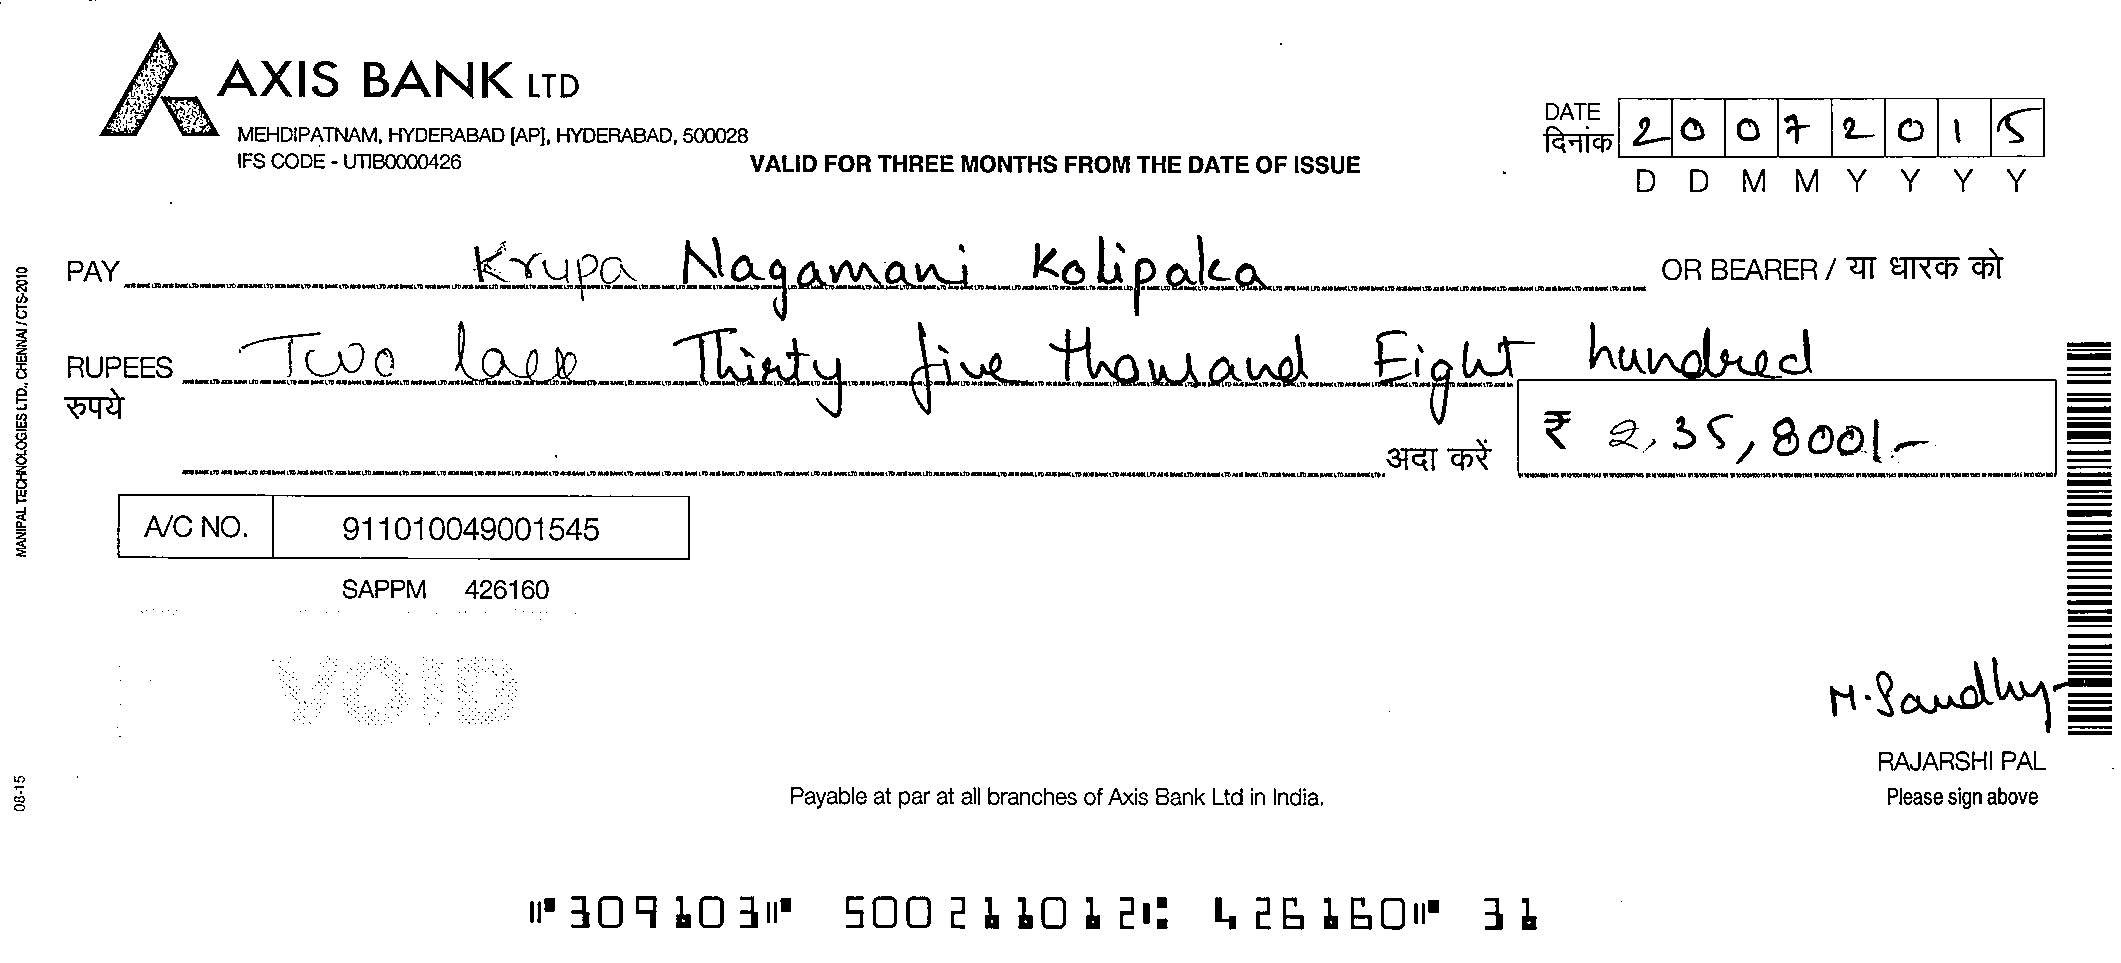 AXIS BANK LTD
MEHDIPATNAM, HYDERABAD [AP], HYDERABAD, 500028
IFS CODE - UTIB0000426
VALID FOR THREE MONTHS FROM THE DATE OF ISSUE
DATE
दिनांक
2 0 0 7 2 0 1 5
D D M M Y Y Y Y
PAY Krupa Nagamani Kolipaka OR BEARER / या धारक को
RUPEES Two lacs Thirty five thousand Eight hundred
रुपये
अदा करें ₹ 2,35,800/-
A/C NO. 911010049001545
SAPPM 426160
VOID
M. Sandhy
RAJARSHI PAL
Please sign above
Payable at par at all branches of Axis Bank Ltd in India.
MANIPAL TECHNOLOGIES LTD., CHENNAI / CTS-2010
08-15
⑈309103⑈ 500211012⑆ 426160⑈ 31